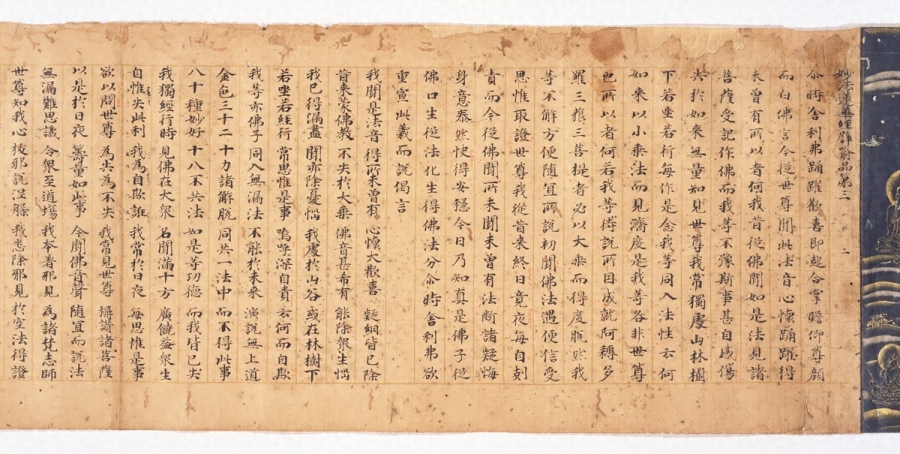 妙法蓮華經譬喻品第三 二
尒時舍利弗踊躍歡喜即起合掌瞻仰尊顏
而白佛言今從世尊聞此法音心懷踊躍得
未曾有所以者何我昔從佛聞如是法見諸
菩薩受記作佛而我等不豫斯事甚自感傷
失於如來無量知見世尊我常獨處山林樹
下若坐若行每作是念我等同入法性云何
如來以小乘法而見濟度是我等咎非世尊
也所以者何若我等待說所因成就阿耨多
羅三藐三菩提者必以大乘而得度脫然我
等不解方便隨宜所說初聞佛法遇便信受
思惟取證世尊我從昔來終日竟夜每自剋
責而今從佛聞所未聞未曾有法斷諸疑悔
身意泰然快得安穩今日乃知真是佛子從
佛口生從法化生得佛法分尒時舍利弗欲
重宣此義而說偈言
我聞是法音 得所未曾有 心懷大歡喜 疑網皆已除
昔來蒙佛教 不失於大乘 佛音甚希有 能除眾生惱
我已得漏盡 聞亦除憂惱 我處於山谷 或在林樹下
若坐若經行 常思惟是事 嗚呼深自責 云何而自欺
我等亦佛子 同入無漏法 不能於未來 演說無上道
金色三十二 十力諸解脫 同共一法中 而不得此事
八十種妙好 十八不共法 如是等功德 而我皆已失
我獨經行時 見佛在大眾 名聞滿十方 廣饒益眾生
自惟失此利 我為自欺誑 我常於日夜 每思惟是事
欲以問世尊 為失為不失 我常見世尊 稱讚諸菩薩
以是於日夜 籌量如此事 今聞佛音聲 隨宜而說法
無漏難思議 令眾至道場 我本著邪見 為諸梵志師
世尊知我心 拔邪說涅槃 我悉除邪見 於空法得證